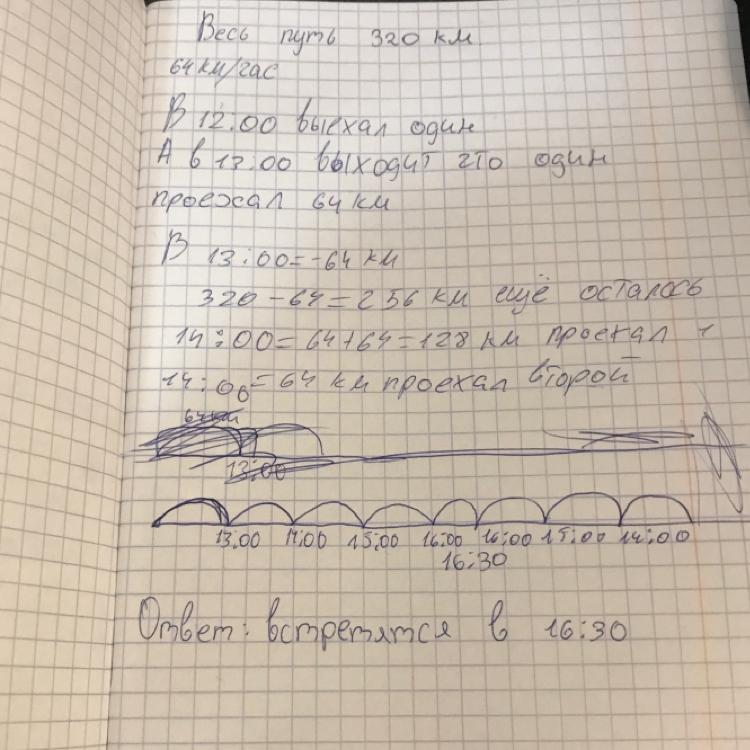 Весь путь 320 км
64 км/час
В 12:00 выехал один
А в 13:00 выходит что один
проехал 64 км
В 13:00=-64 км
320-64=256 км ещё осталось
14:00=64+64=128 км проехал 1
14:00=64 км проехал второй
64км
13:00
13:00 14:00 15:00 16:00 16:00 15:00 14:00
16:30
Ответ: встретятся в 16:30